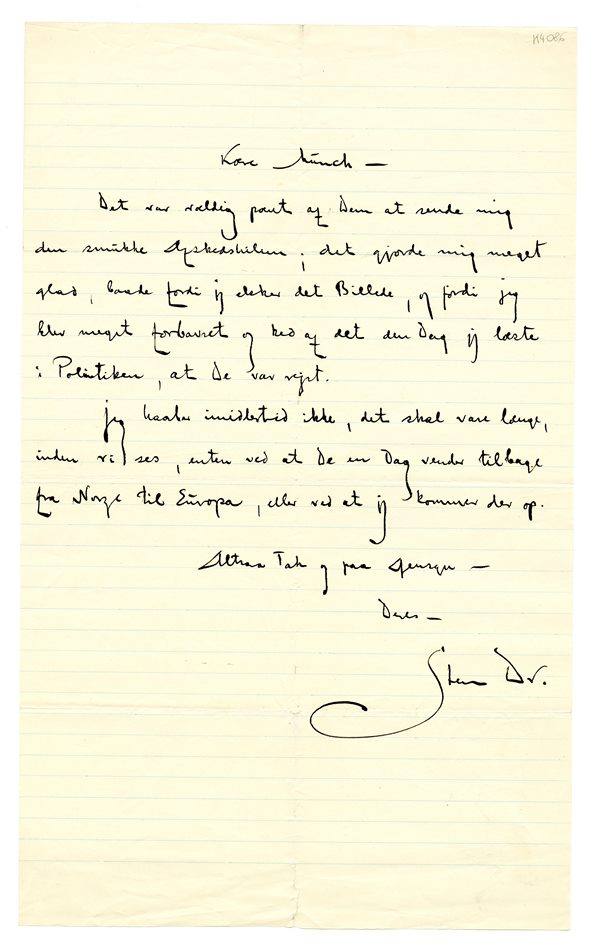 K4086
Kære Munch —
Det var vældig pænt af Dem at sende mig
den smukke Afskedshilsen; det gjorde mig meget
glad, baade fordi jeg elsker det Billede, og fordi jeg
blev meget forbavset og ked af det den Dag jeg læste
i Politiken, at De var rejst.
Jeg haaber imidlertid ikke, det skal vare længe,
inden vi ses, enten ved at De en Dag vender tilbage
fra Norge til Európa, eller ved at jeg kommer der op.
Altsaa Tak og paa Gensyn —
Deres —
Sten Dr.